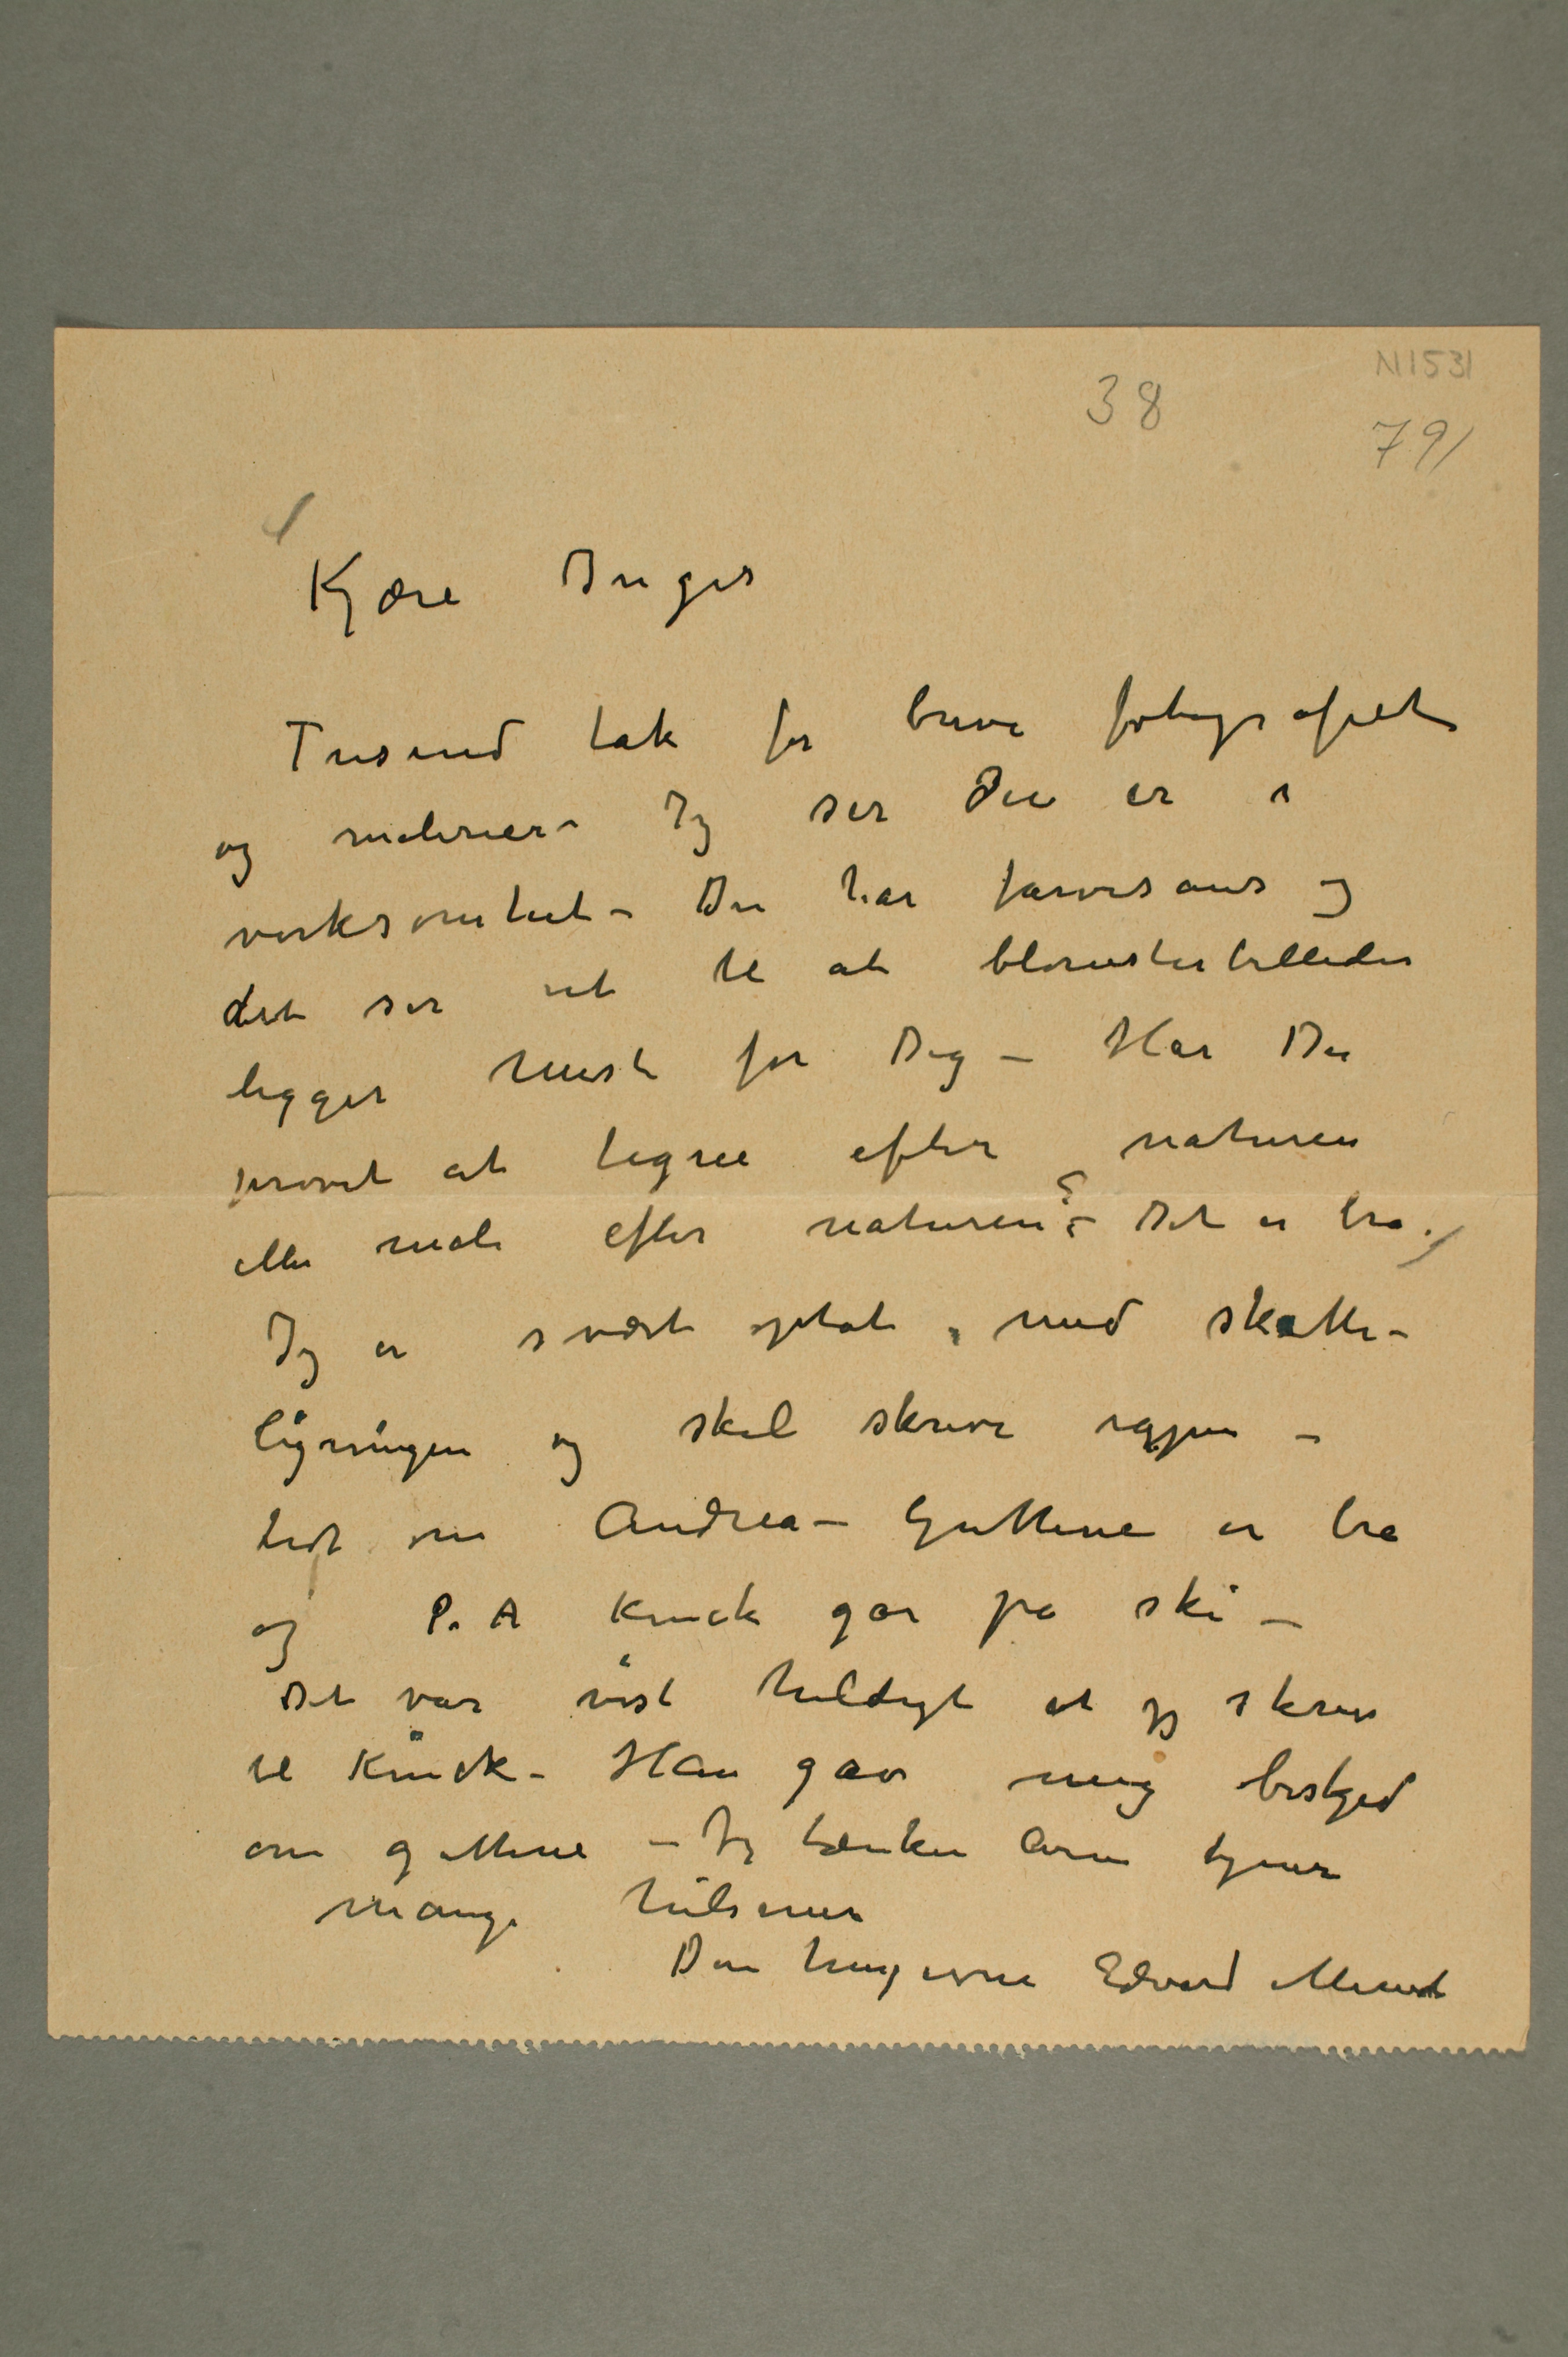 N1531
38
79/
Kjære Inger
Tusind tak for breve fotografiet
og malerier – Jeg ser Du er i
virksomhet – Du har farvesans og
det ser ut til at blomsterbilleder
ligger mest for Dig – Har Du
prøvet at tegne efter naturen
eller male efter naturen? – Det er bra.
Jeg er svært optat, med skatte-
ligningen og skal skrive igjen –
lidt om Andrea – Guttene er bra
og P. A Kinck går på ski –
Det var vist heldigt at jeg skrev
til Kinck – Han gav mig besked
om guttene – Jeg tænker
mange hilsener
Din hengivne Edvard Munch